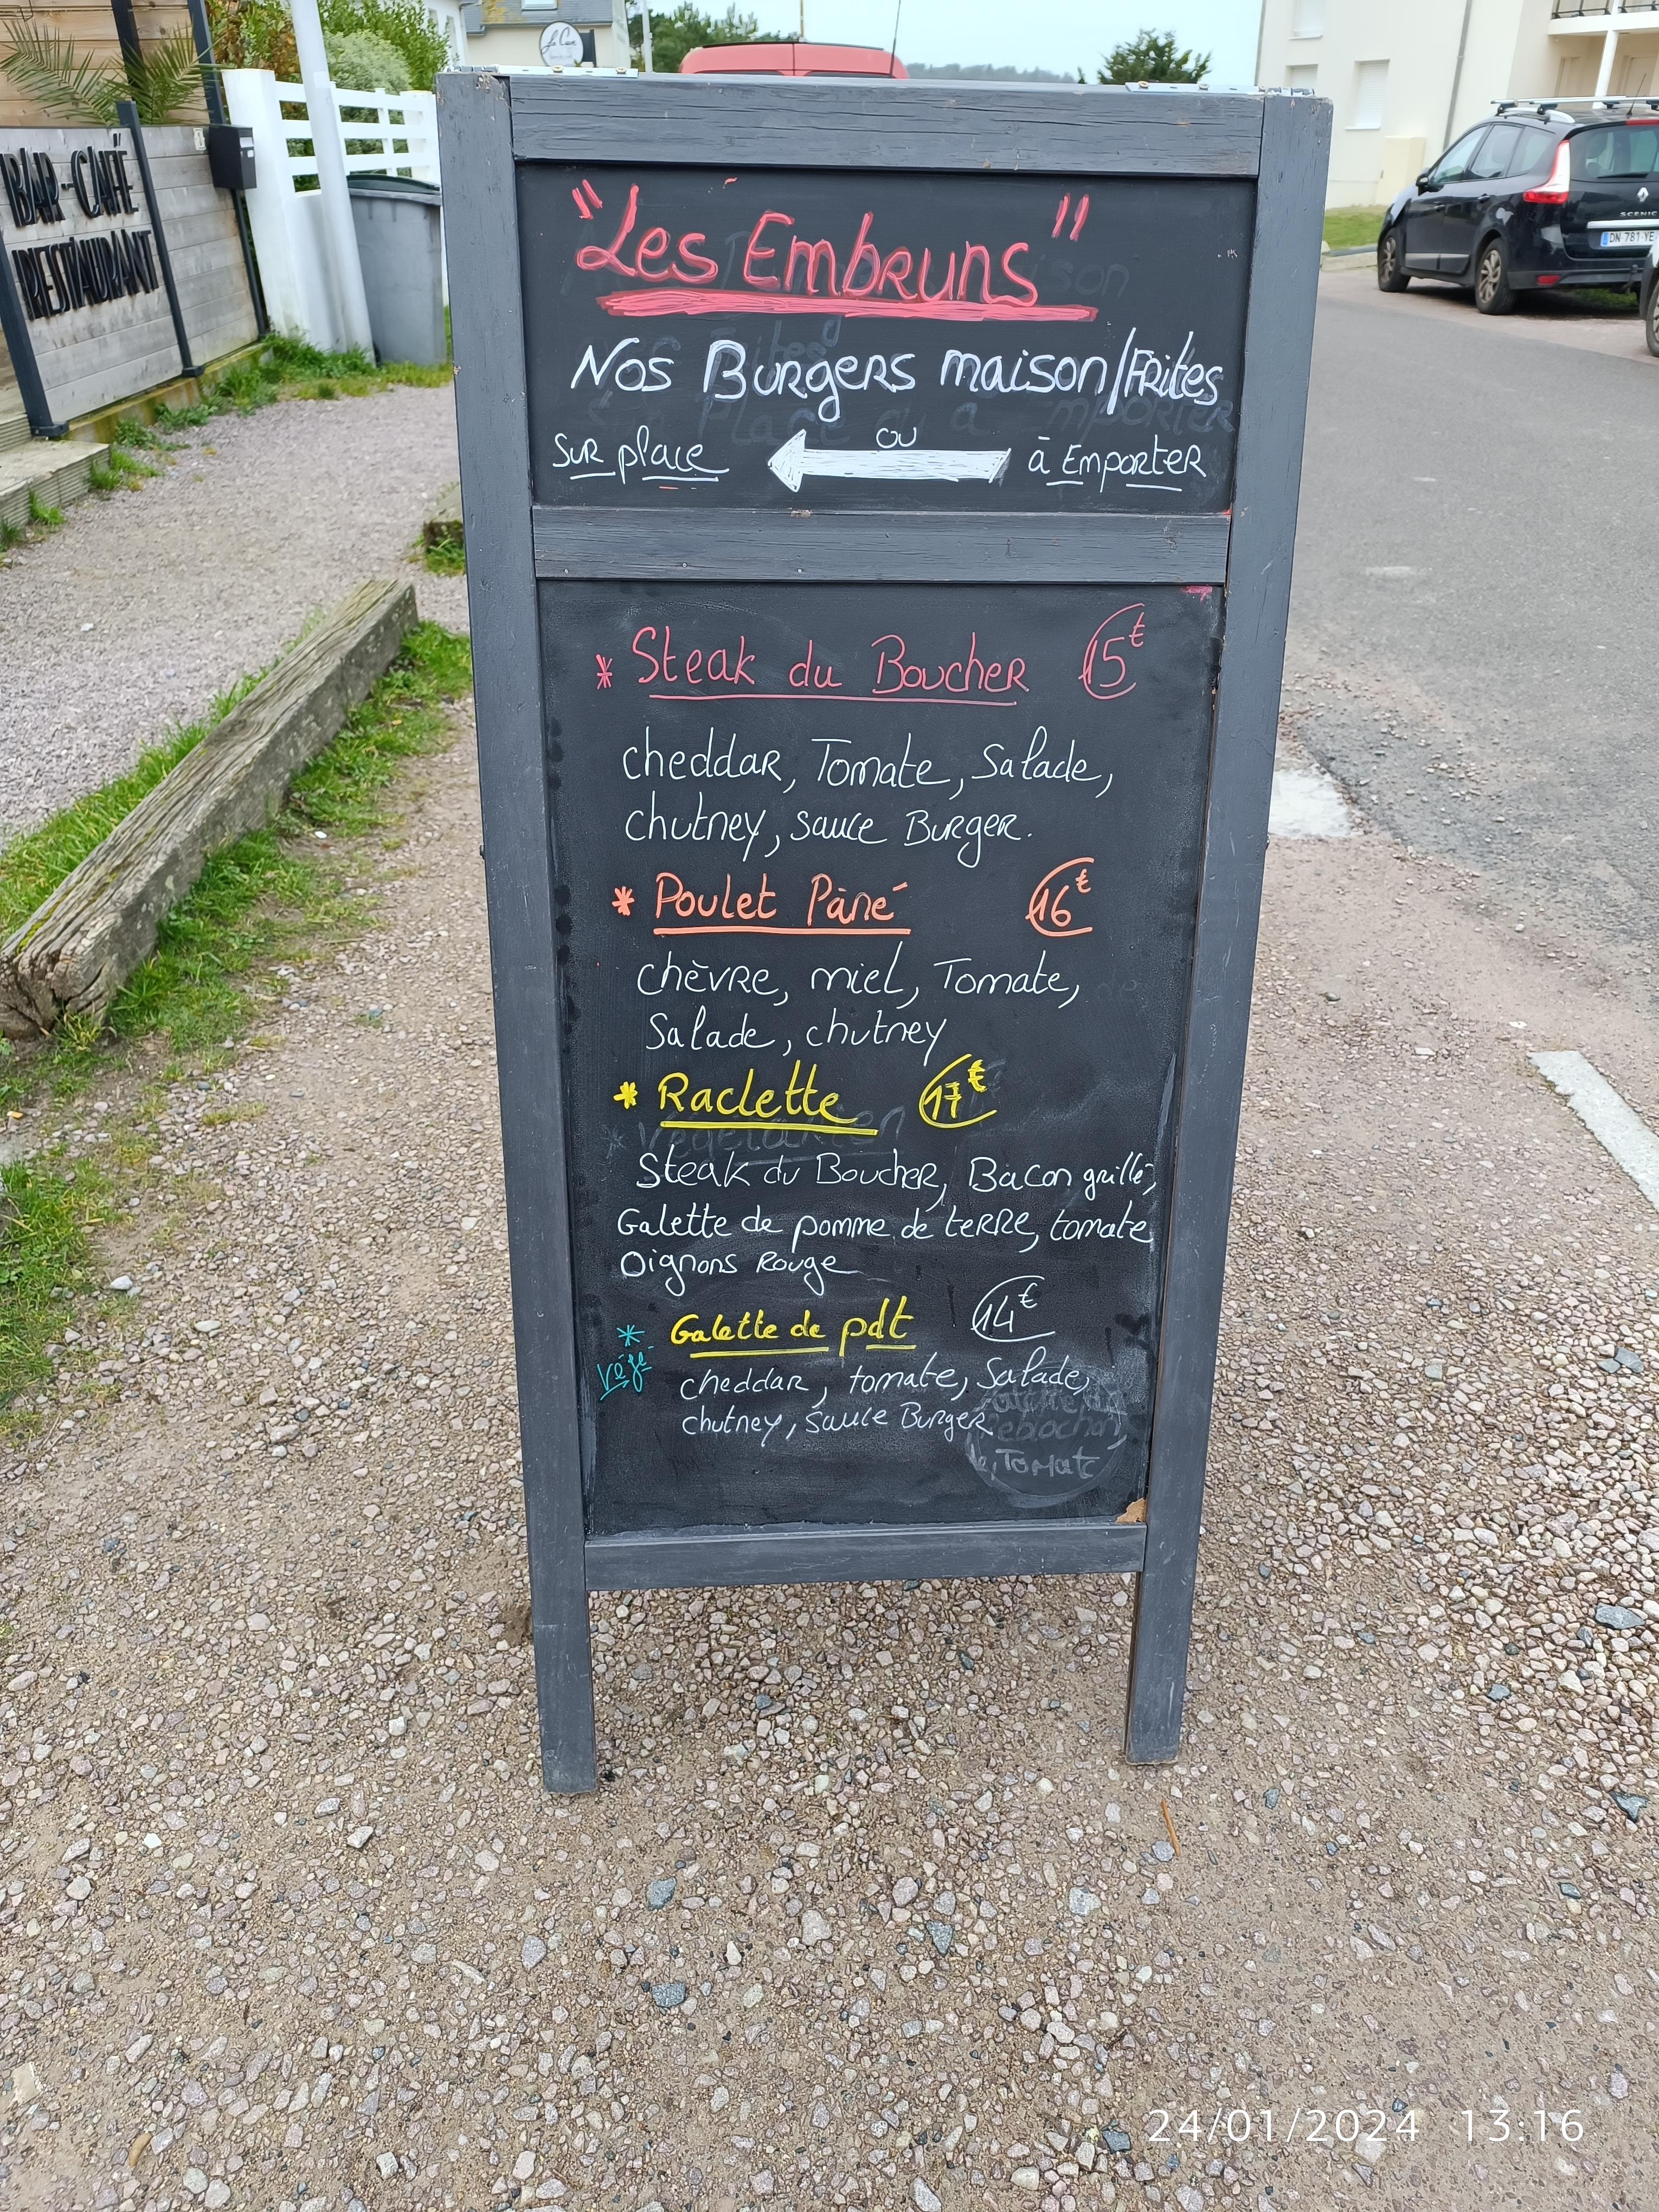 BAR-CAFÉ
RESTAURANT
"Les Embruns"
Nos Burgers maison/Frites
Sur place ou à Emporter
* Steak du Boucher 15€
cheddar, Tomate, Salade,
chutney, sauce Burger.
* Poulet Pàné 16€
chèvre, miel, Tomate,
Salade, chutney
* Raclette 17€
Végétarien
Steak du Boucher, Bacon grillé,
Galette de pomme de terre, tomate
Oignons Rouge
* Galette de pdt 14€
Végé
cheddar, tomate, Salade,
chutney, sauce Burger
Tomate
SCENIC
DN-781-YE
24/01/2024 13:16